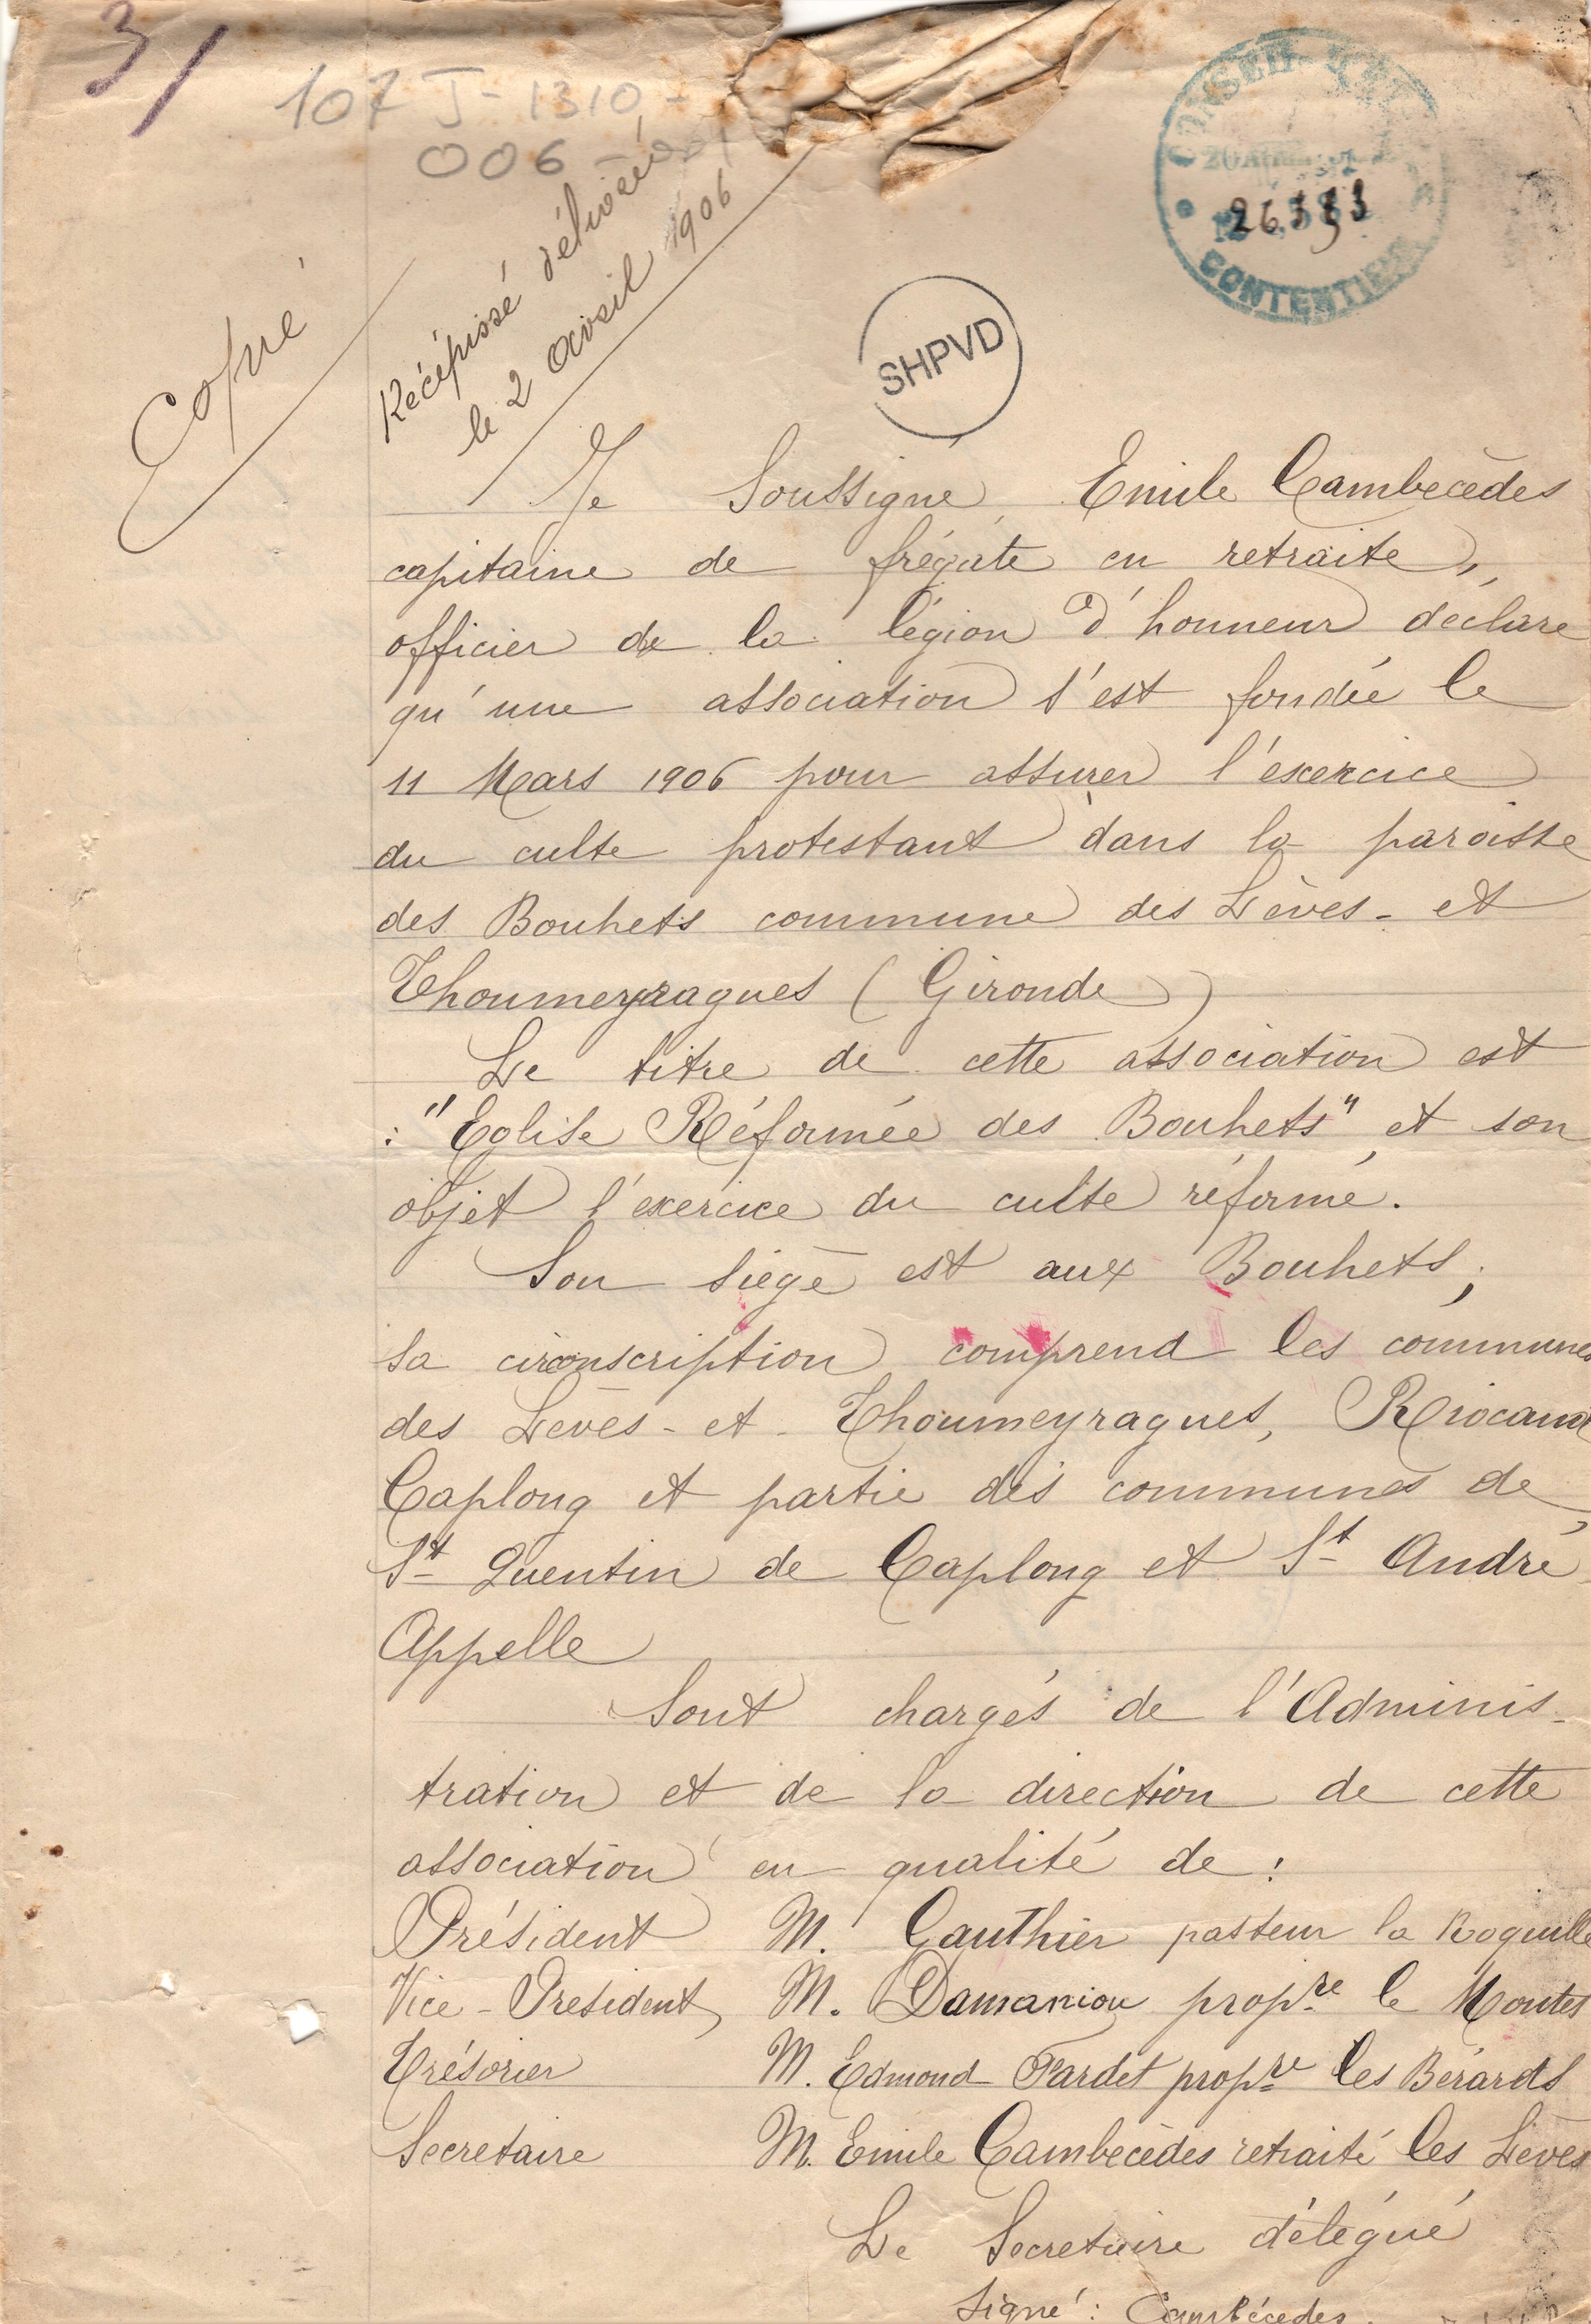 3/
107 J - 1310 -
006 - 001
CONSEIL
CONTENTIEUX
SHPVD
Copié
Récépissé délivré
le 2 avril 1906
Je Soussigné Emile Cambecèdes
capitaine de frégate en retraite,
officier de la légion d'honneur déclare
qu'une association s'est fondée le
11 Mars 1906 pour assurer l'éxercice
du culte protestant dans la paroisse
des Bouhets commune des Lèves - et
Thoumeyragues (Gironde)
Le titre de cette association est
: "Eglise Réformée des Bouhets" et son
objet l'exercice du culte réformé.
Son siège est aux Bouhets ;
sa circonscription comprend les communes
des Lèves - et - Thoumeyragues, Riocaud
Caplong et partie des communes de
St Quentin de Caplong et St André
Appelle
Sont chargés de l'Adminis-
tration et de la direction de cette
association en qualité de :
Président M. Gauthier pasteur la Roquille
Vice - President, M. Damaniou propre le Montes
Trésorier M. Edmond Fardet propre les Bérards
Secretaire M. Emile Cambecèdes retraité les Lèves
Le Secretaire délégué
Signé : Cambécedes